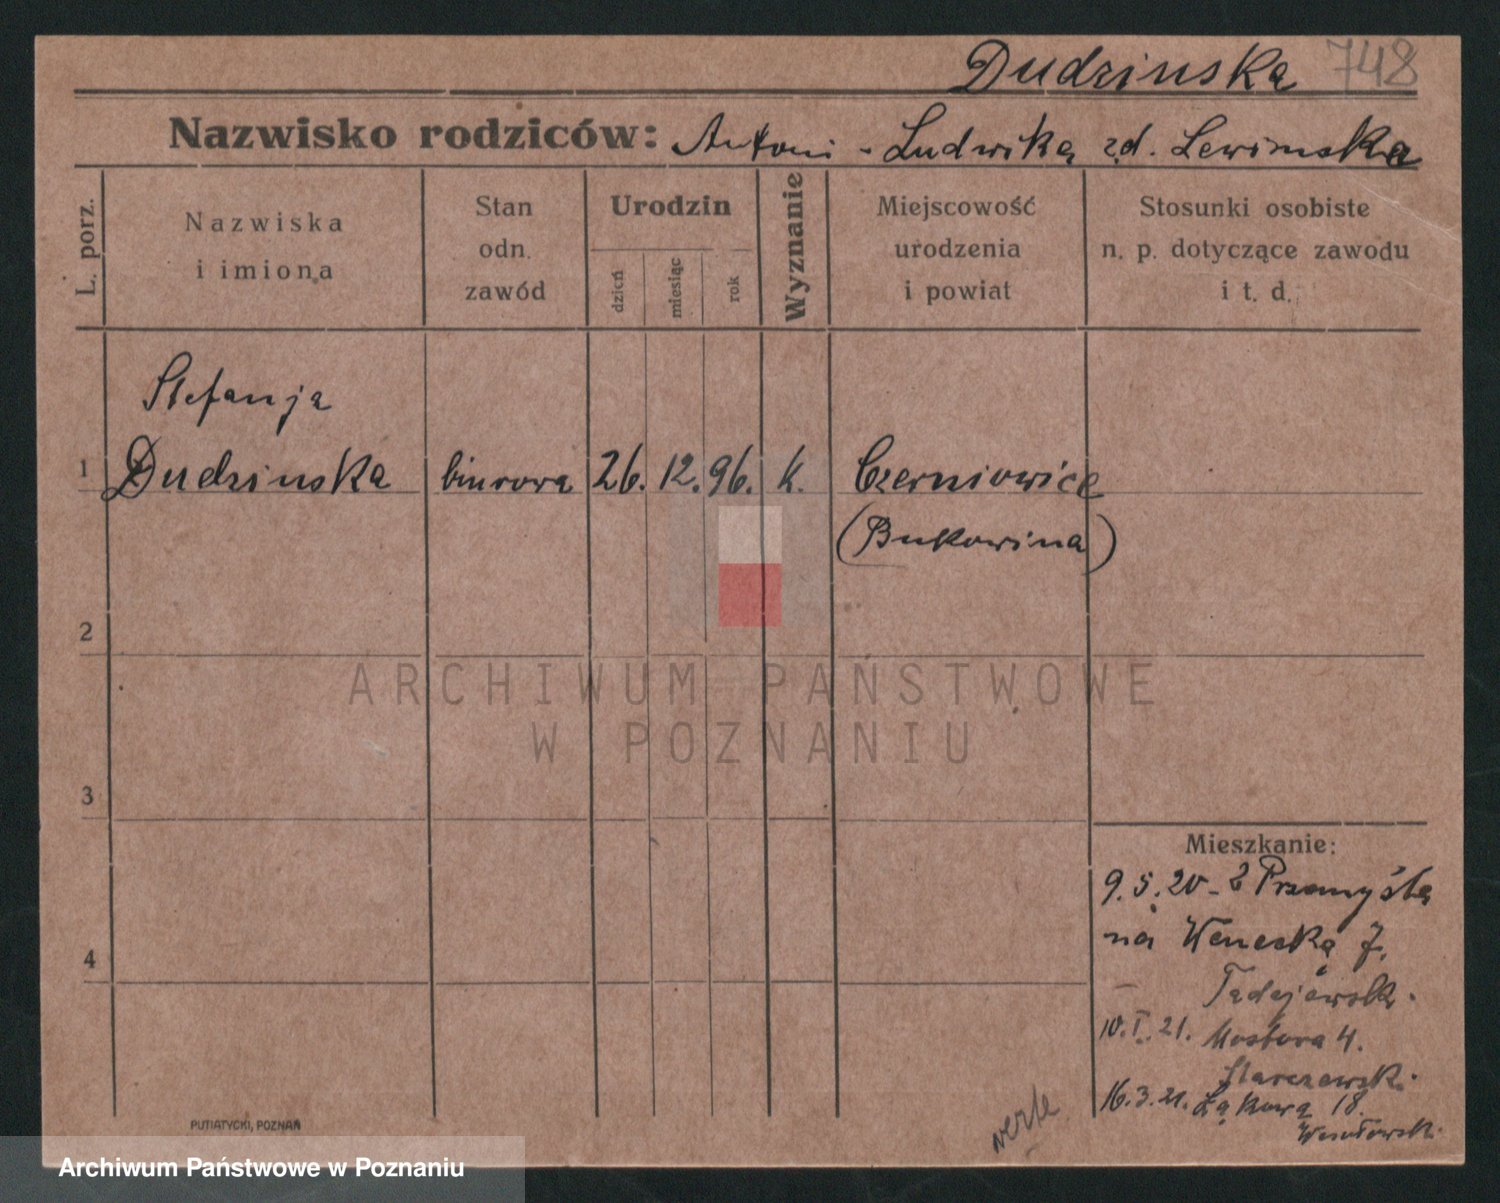 Dudzinska 748
Nazwisko rodziców: Antoni - Ludwika zd. Lewinska
L. porz.
Nazwiska
i imiona
Stan
odn.
zawód
Urodzin
dzień
miesiąc
rok
Wyznanie
Miejscowość
urodzenia
i powiat
Stosunki osobiste
n. p. dotyczące zawodu
i t. d.
Stefanja
1 Dudzinska biurowa 26. 12. 96. k. Czerniowice
(Bukowina)
2
ARCHIWUM PAŃSTWOWE
W POZNANIU
3
Mieszkanie:
9.5.20 - z Przemyśla
na Weneska 7.
4
10.I.21. Mostowa 4.
16.3.21. Łąkowa 18
verte
PUTIATYCKI, POZNAŃ
Archiwum Państwowe w Poznaniu